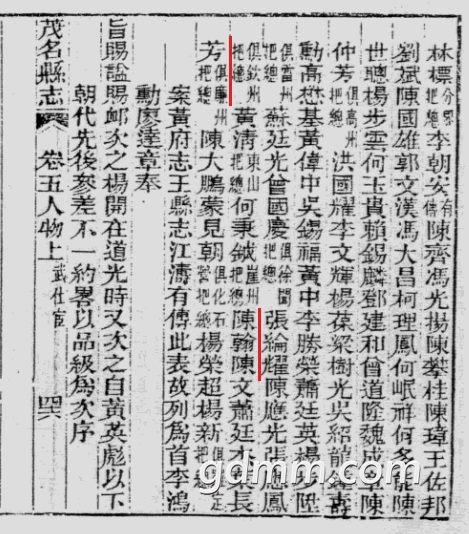 林標分界把總李朝安有傳陳齊馮光揚陳攀桂陳璋王佐邦
劉斌陳國雄郭文漢馮大昌柯理鳳何岷祥何多能陳
世聰楊步雲何玉貴賴錫麟鄧建和曾道隆魏成章陳
仲芳俱高州把總洪國耀李文輝楊葆梁樹光吳紹龍壽
勳高懋基黃偉中吳錫福黃中李勝榮蕭廷英楊步陞
俱雷州把總蘇廷光曾國慶俱徐聞把總張綸耀陳應光張恩鳳
俱欽州把總黃淸東山把總何秉鉞崖州把總陳翰陳文蕭廷長
芳俱廉州把總陳大鵬蒙見朝俱化石把總楊榮超楊新俱定把總
案黃府志王縣志江濤有傳此表故列爲首李鴻
勳廖達章奉
旨賜謚賜卹次之楊開在道光時又次之自黃英彪以下
朝代先後參差不一約畧以品級爲次序
茂名縣志 卷五人物上 武仕宦 四六
gdmm.com